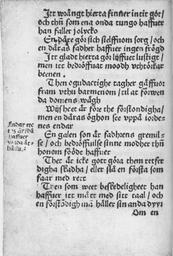 Itt wrångt hierta finner intit got/
och thn som ena onda tungo haffuer
han faller
En dåre gör sich sielffuom sorg/ och
en dåras fadher haffuer ingen frögd
Itt gladt hierta gör lijffuet lustigt/
men itt bedröffuat moodh
benen
Then ogudactighe tagher gåffuor
fram vthu barmenom/ til at
da domens wägh
Wijsheet är för the förstondigha/
men en dåras öghon see vppå iordenes
endar
En galen son är sadhens
se/ och bedröffuilse sinne modher thn
honom födde haffuer
Thet är icke gott göra them retferdigha
skadha/ eller slå en första som
faar med rett
Then som weet beskedeligheet han
haffuer itt mått med sitt taal/ och
en förstådigh ma håller sin anda
Om en
Endar
haffuer